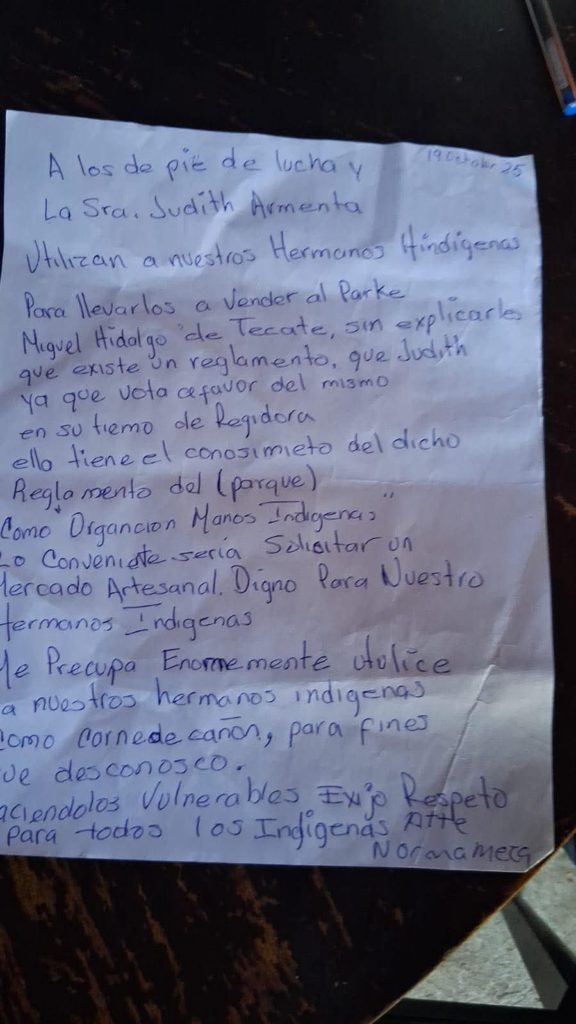 19 Octubr 25
A los de pie de lucha y
La Sra. Judith Armenta
Utilizan a nuestros Hermanos Hindigenas
Para llevarlos a vender al Parke
Miguel Hidalgo de Tecate, sin explicarles
que existe un reglamento, que Judith
ya que vota a favor del mismo
en su tiemo de Regidora
ella tiene el conosimieto del dicho
Reglamento del (parque)
Como "Organcion Manos Indigenas"
Lo Conveniete seria Solisitar un
Mercado Artesanal. Digno Para Nuestro
Hermanos Indigenas
Me Precupa Enormemente utulice
a nuestros hermanos indigenas
como cornede cañon, para fines
que desconosco.
aciendolos Vulnerables Exijo Respeto
para todos los Indigenas Atte
Norma meza